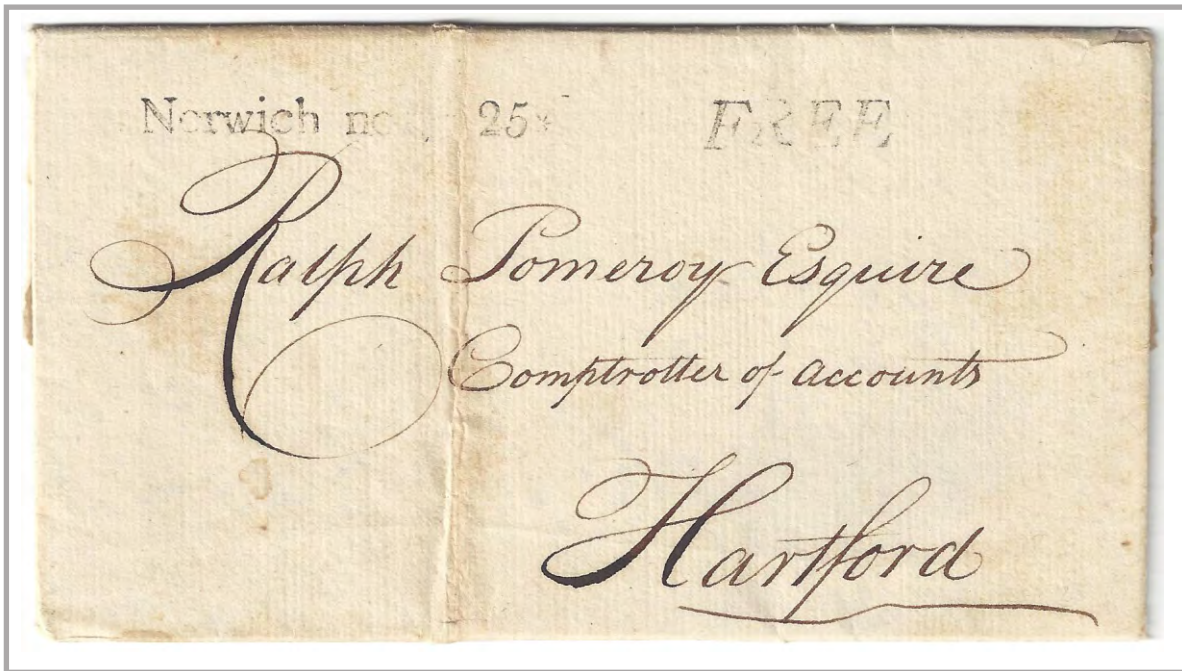 Norwich 25* FREE
Ralph Pomeroy Esquire
Comptroller of accounts
Hartford